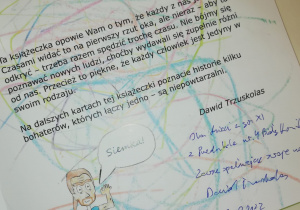 Ta książeczka opowie Wam o tym, że każdy z nas j
Czasami widać to na pierwszy rzut oka, ale nieraz – aby
odkryć – trzeba razem spędzić trochę czasu. Nie bójmy się
poznawać nowych ludzi, choćby wydawali się zupełnie różni
od nas. Przecież to piękne, że każdy człowiek jest jedyny w
swoim rodzaju.
Na dalszych kartach tej książeczki poznacie historie kilku
bohaterów, których łączy jedno – są niepowtarzalni.
Dawid Trzuskolas
Siemka!
Dla dzieci
z
Zawsze
Dawid Trzuskolas